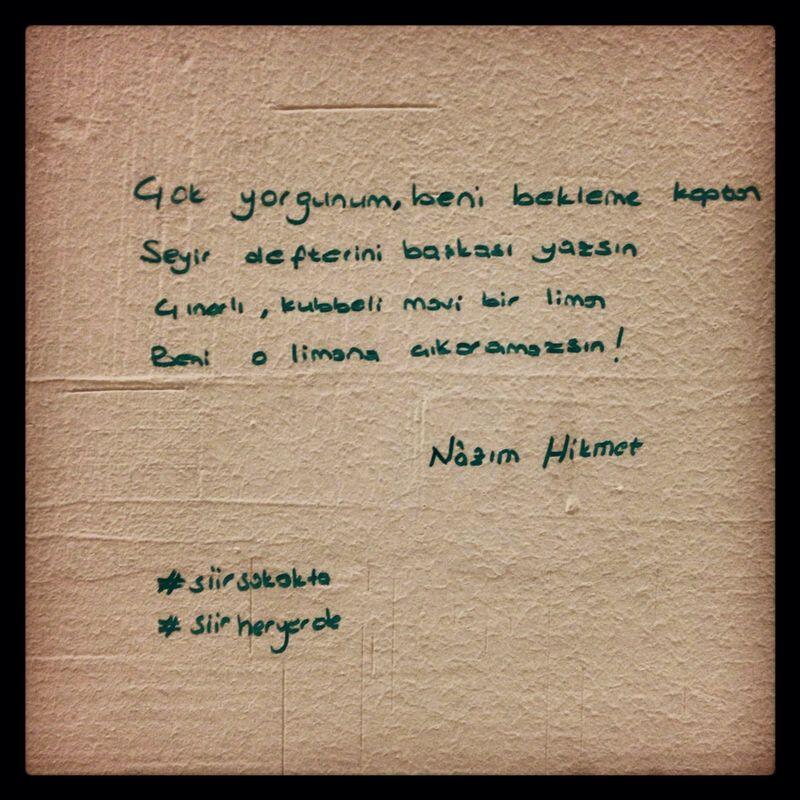 Çok yorgunum, beni bekleme kaptan
Seyir defterini başkası yazsın
Çınarlı, kubbeli mavi bir liman
Beni o limana çıkaramazsın!
Nâzım Hikmet
#siirsokakta
#siirheryerde